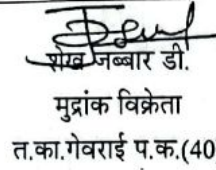 शेख जब्बार डी.
मुद्रांक विक्रेता
त.का.गेवराई प.क.(40